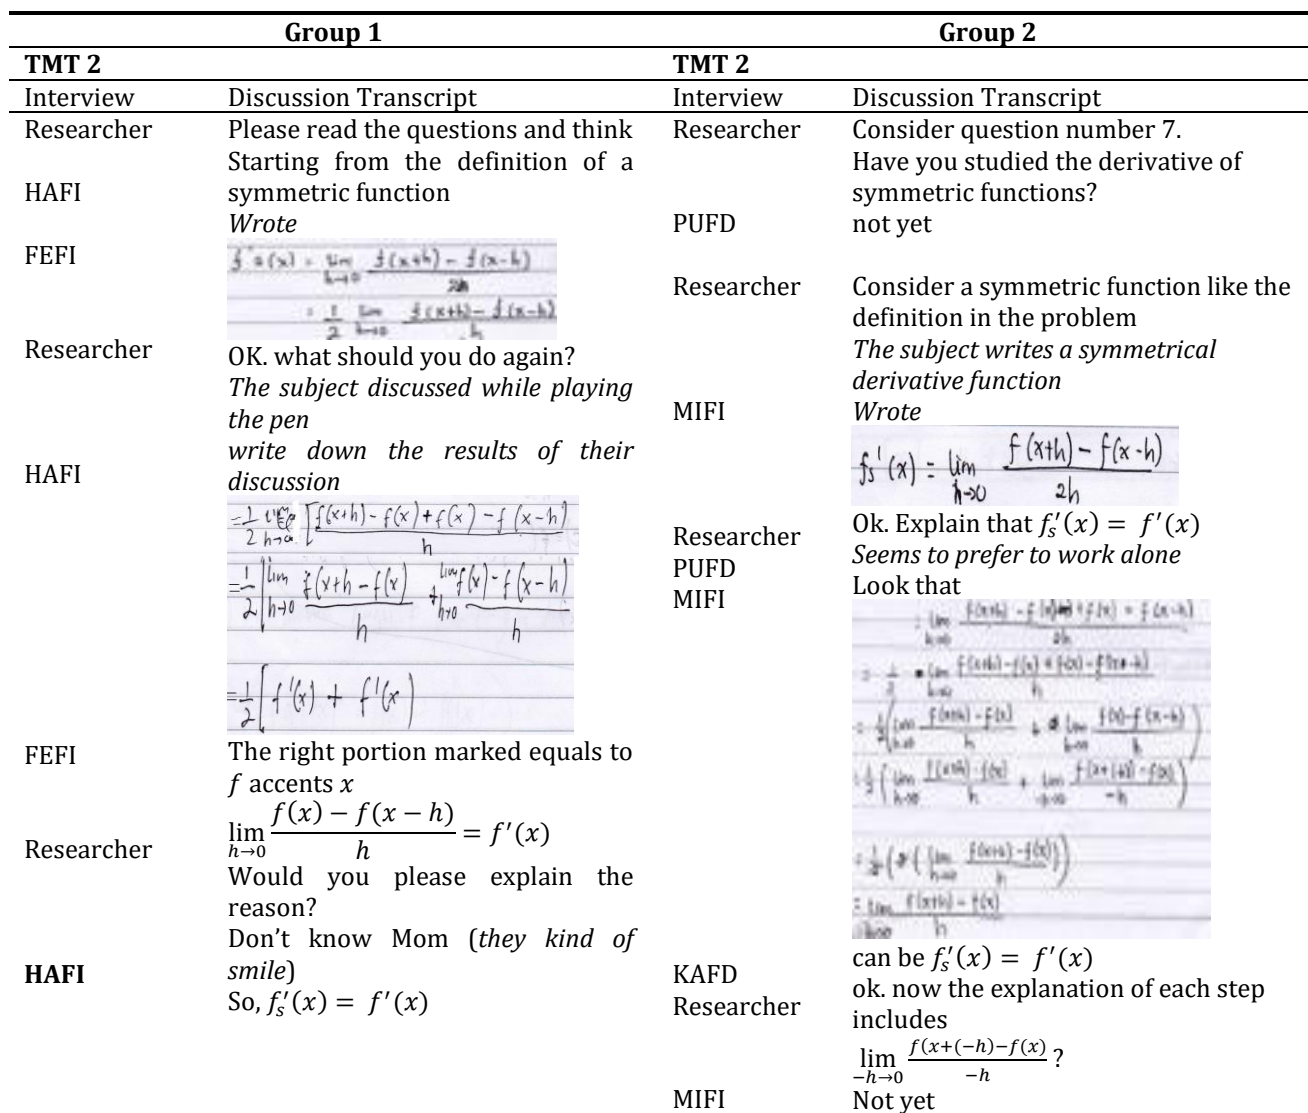 Group 1 Group 2
TMT 2 TMT 2
Interview Discussion Transcript Interview Discussion Transcript
Researcher Please read the questions and think
HAFI Starting from the definition of a
symmetric function
FEFI Wrote
f's(x) = lim h→0 f(x+h) - f(x-h) / 2h
= 1/2 lim h→0 f(x+h) - f(x-h) / h
Researcher OK. what should you do again?
The subject discussed while playing
the pen
HAFI write down the results of their
discussion
= 1/2 lim h→0 [f(x+h) - f(x) + f(x) - f(x-h) / h
= 1/2 [lim h→0 f(x+h - f(x) / h + lim h→0 f(x) - f(x-h) / h
= 1/2 [f'(x) + f'(x)
FEFI The right portion marked equals to
f accents x
lim h→0 f(x) − f(x − h) / h = f′(x)
Researcher Would you please explain the
reason?
Don't know Mom (they kind of
HAFI smile)
So, f′s(x) = f′(x)
Researcher Consider question number 7.
Have you studied the derivative of
symmetric functions?
PUFD not yet
Researcher Consider a symmetric function like the
definition in the problem
The subject writes a symmetrical
derivative function
MIFI Wrote
fs'(x) = lim h→0 f(x+h) - f(x-h) / 2h
Researcher Ok. Explain that f′s(x) = f′(x)
PUFD Seems to prefer to work alone
MIFI Look that
= 1/2 (lim h→0 f(x+h) - f(x) / h + lim h→0 f(x) - f(x-h) / h)
= 1/2 (lim h→0 f(x+h) - f(x) / h + lim -h→0 f(x+(-h)) - f(x) / -h)
= lim h→0 f(x+h) - f(x) / h
KAFD can be f′s(x) = f′(x)
Researcher ok. now the explanation of each step
includes
lim −h→0 f(x+(−h)−f(x) / −h ?
MIFI Not yet